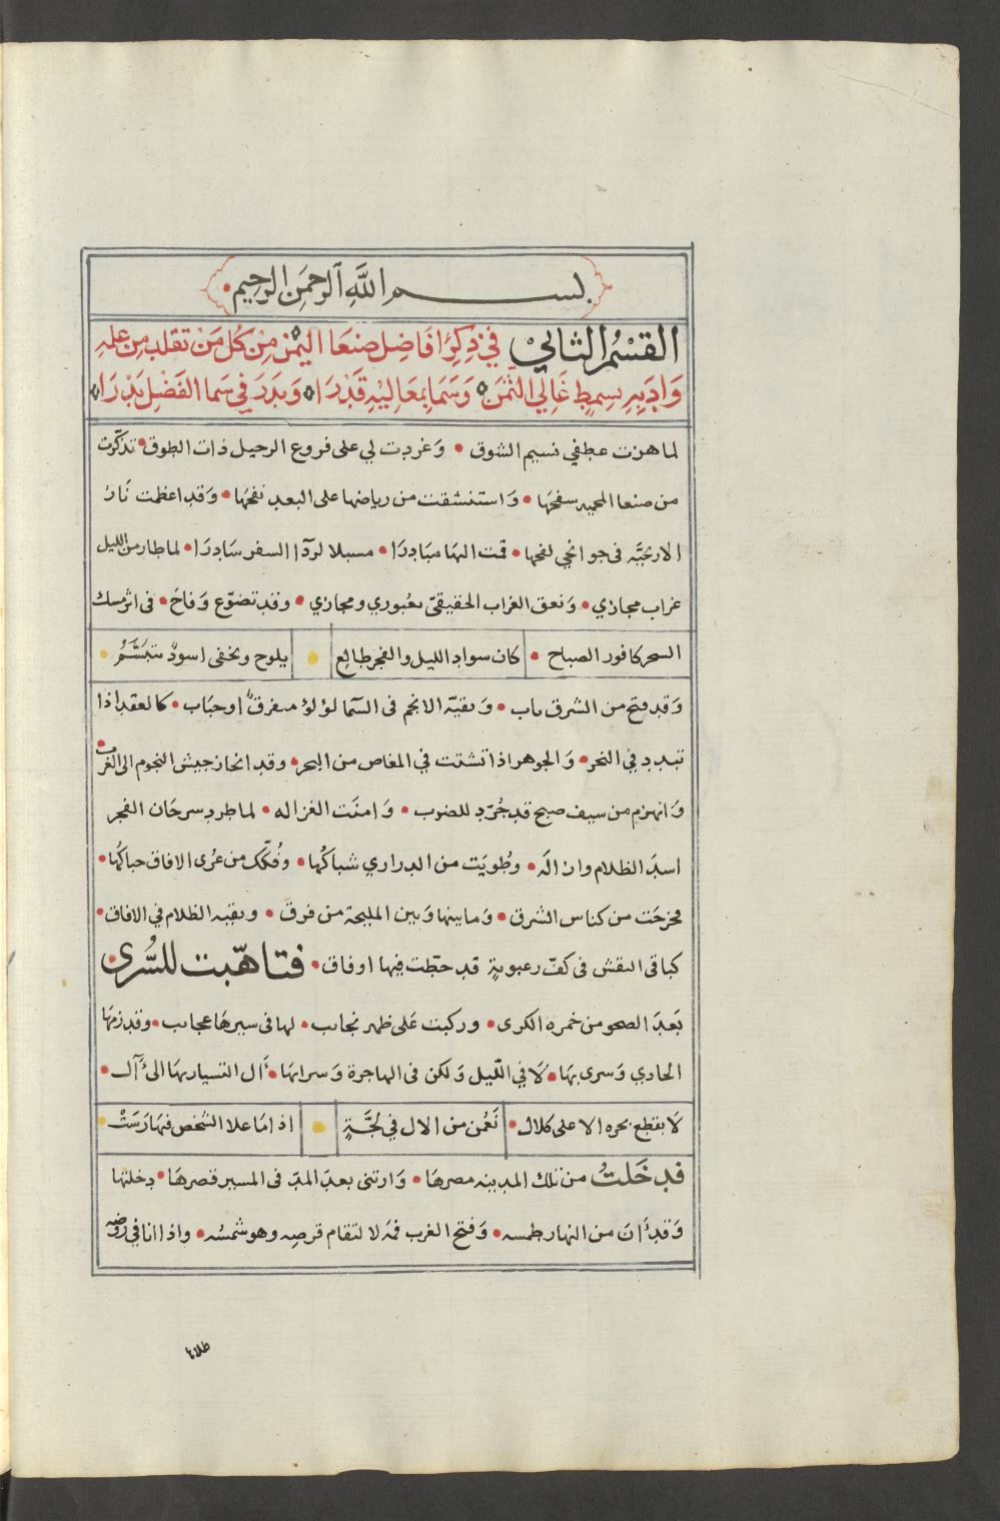 بسم الله الرحمن الرحيم
القسم الثاني في ذكر افاضل صنعا اليمن من كل من تقلب من علمه
وادبه بسمط غالي الثمن وسما بمعاليه قدرا وبدر في سما الفضل بدرا
لما هزت عطفي نسيم الشوق • وغردت لي على فروع الرحيل ذات الطوق • تذكرت
من صنعا المحميه سفحها • واستنشقت من رياضها على البعد نفحها • وقد اعظمت نار
الاريحيه في جوانحي لفحها • قمت اليها مبادرا • مسبلا لردا السفر سادرا • لما طار من الليل
غراب مجازي • ونعق الغراب الحقيقي بعبوري ومجازي • وقد تضوع وفاح • في اثر مسك
السحر كافور الصباح • كان سواد الليل والفجر طالع • يلوح ويخفى اسود يتبسم •
وقد فتح من الشرق باب • وبقية الانجم في السما لؤلؤ مفرق او حباب • كالعقد اذا
تبدد في النحر • والجوهر اذا تشتت في المغاص من البحر • وقد انحاز جيش النجوم الى الغرب •
وانهزم من سيف صبح قد جرد للضرب • وامنت الغزاله • لما طرد سرحان الفجر
اسد الظلام وازاله • وطويت من الدراري شباكها • وفكك من عرى الافاق حباكها •
فخرجت من كناس الشرق • وما بينها وبين المليحة من فرق • وبقيه الظلام في الافاق •
كباقي النقش في كف رعبوبة قد حطت فيها اوفاق • فتاهبت للسرى •
بعد الصحو من خمره الكرى • وركبت على ظهر نجائب • لها في سيرها عجائب • وقد زمها
الحادي وسرى بها • لا في الليل ولكن في الهاجرة وسرابها • ال التسيار بها الى آل •
لا يقطع بحره الا على كلال • نعمن من الال في لجة • اذا ما علا الشخص فيها رست •
فدخلت من تلك المدينه مصرها • وارتني بعد المد في المسير قصرها • دخلتها
وقد آن من النهار طمسه • وفتح الغرب فمه لالتقام قرصه وهو شمسه • واذا انا في روضه